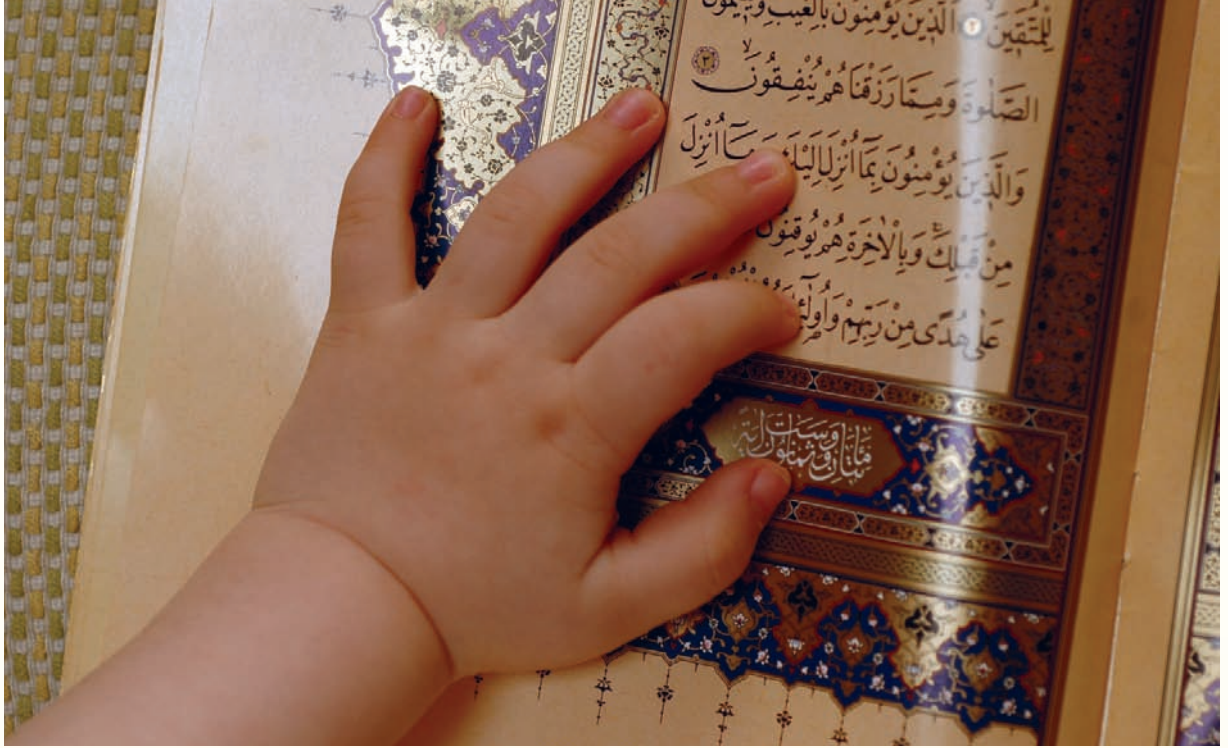 لِلْمُتَّقِينَ ٢ اَلَّذِينَ يُؤْمِنُونَ بِالْغَيْبِ وَيُقِيمُونَ
الصَّلٰوةَ وَمِمَّا رَزَقْنَاهُمْ يُنْفِقُونَۙ ٣
وَالَّذِينَ يُؤْمِنُونَ بِمَٓا اُنْزِلَ اِلَيْكَ وَمَٓا اُنْزِلَ
مِنْ قَبْلِكَۚ وَبِالْاٰخِرَةِ هُمْ يُوقِنُونَ
عَلٰى هُدًى مِنْ رَبِّهِمْ وَاُو۬لٰٓئِكَ
مائتان وست وثمانون اية